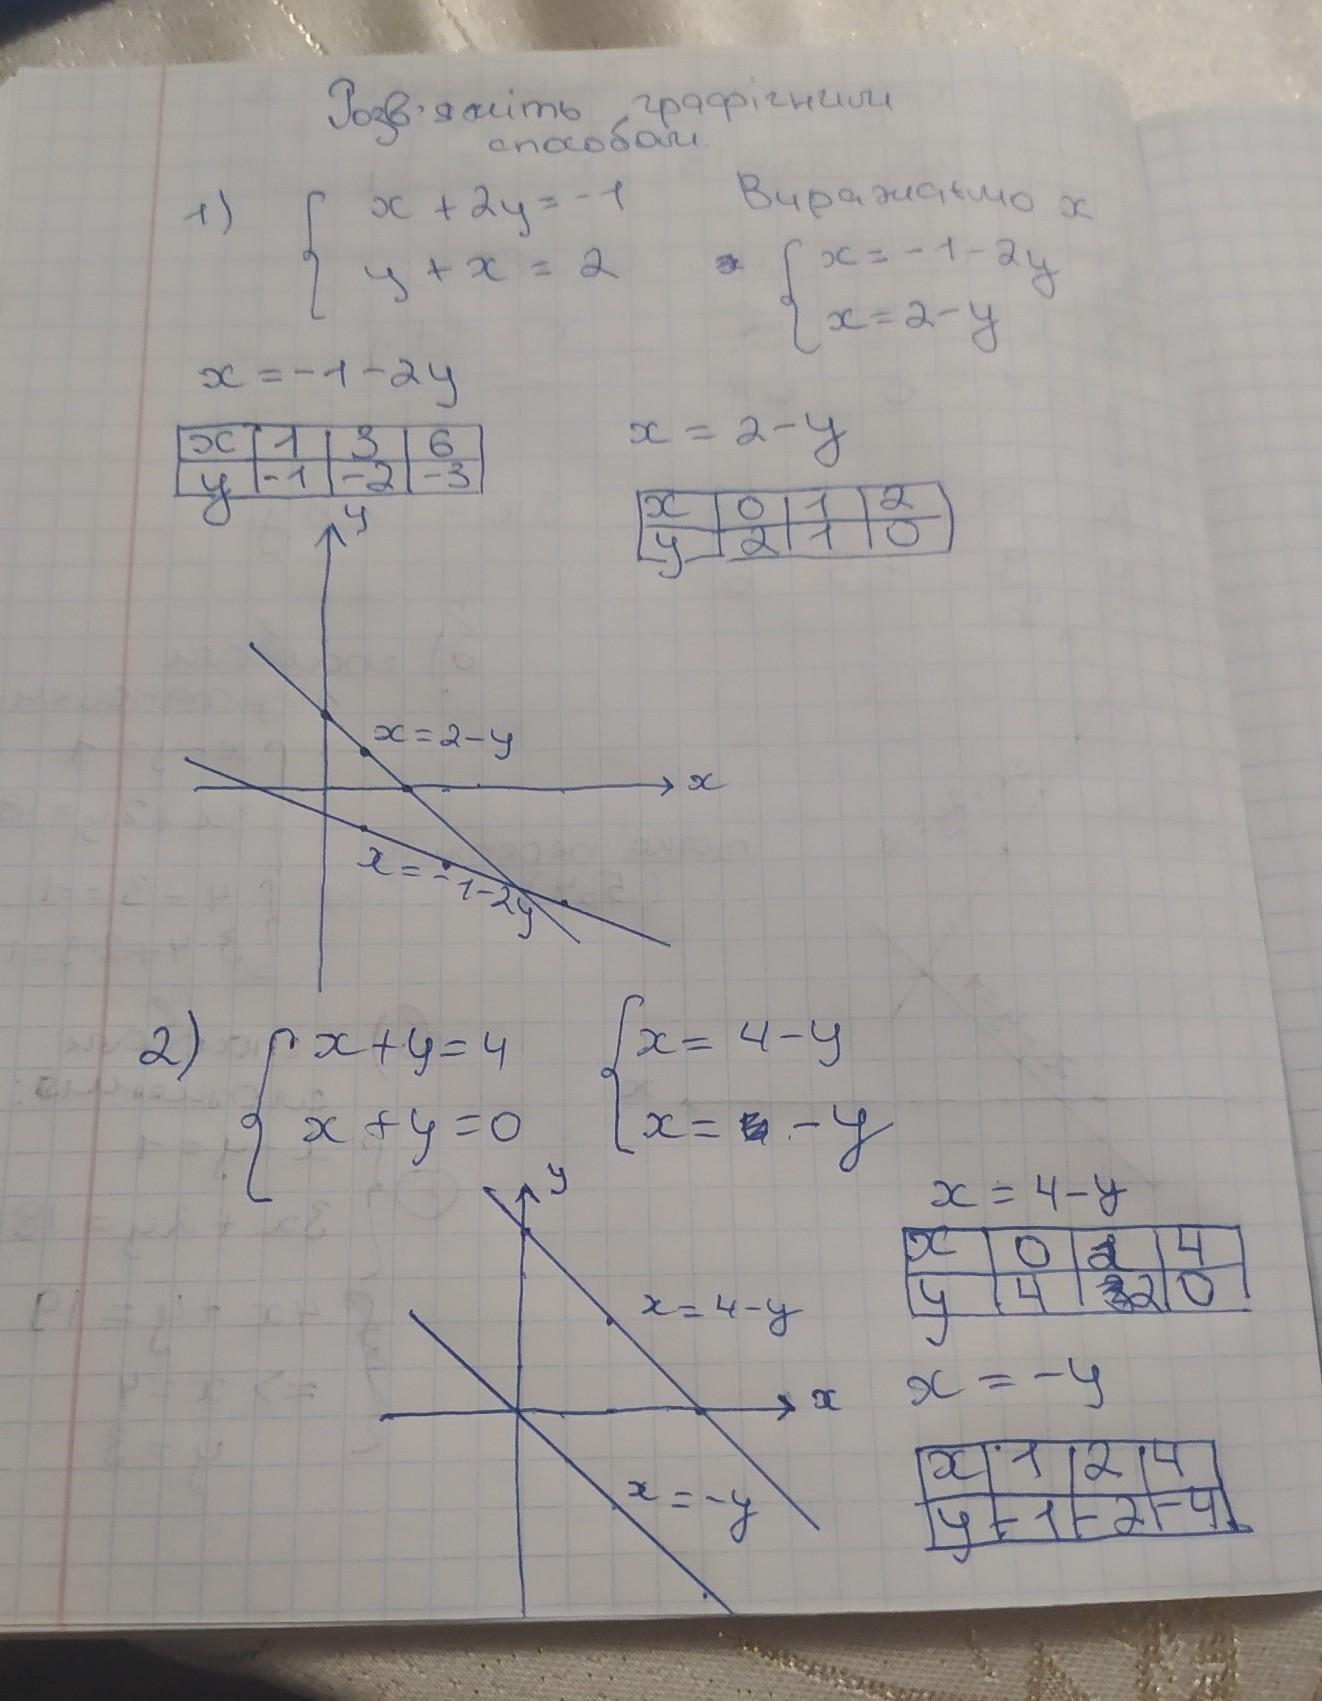 Розв'яжіть графічним
способом.
1) { x + 2y = -1
y + x = 2
Виражаємо x
{ x = -1 - 2y
x = 2 - y
x = -1 - 2y
x 1 3 6
y -1 -2 -3
x = 2 - y
x 0 1 2
y 2 1 0
y
x = 2 - y
x
x = -1 - 2y
2) { x + y = 4
x + y = 0
{ x = 4 - y
x = - y
y
x = 4 - y
x
x = -y
x = 4 - y
x 0 2 4
y 4 2 0
x = -y
x 1 2 4
y -1 -2 -4